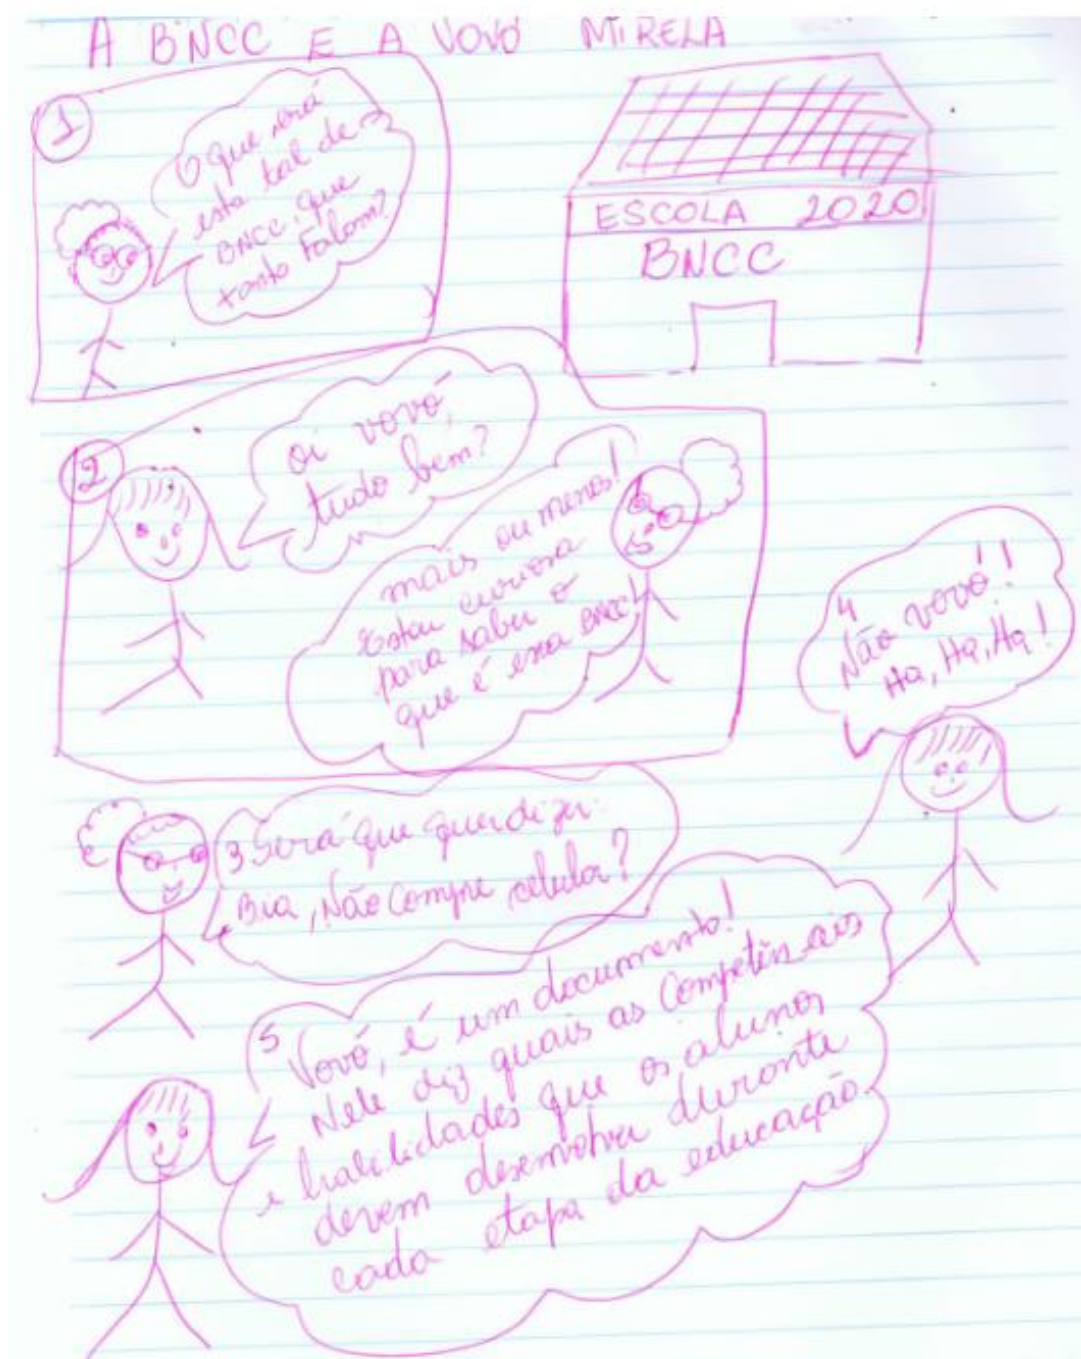 A BNCC E A VOVÓ MIRELA
1
O que será
esta tal de
BNCC, que
tanto Falam?
ESCOLA 2020
BNCC
2
oi vovó,
tudo bem?
mais ou menos!
Estou curiosa
para saber o
que é essa BNCC!
3 Será que quer dizer:
Bia, Não Compre celular?
4
Não vovó!!
Ha, Ha, Ha!
5
Vovó, é um documento!
Nele diz quais as Competências
e habilidades que os alunos
devem desenvolver durante
cada etapa da educação.